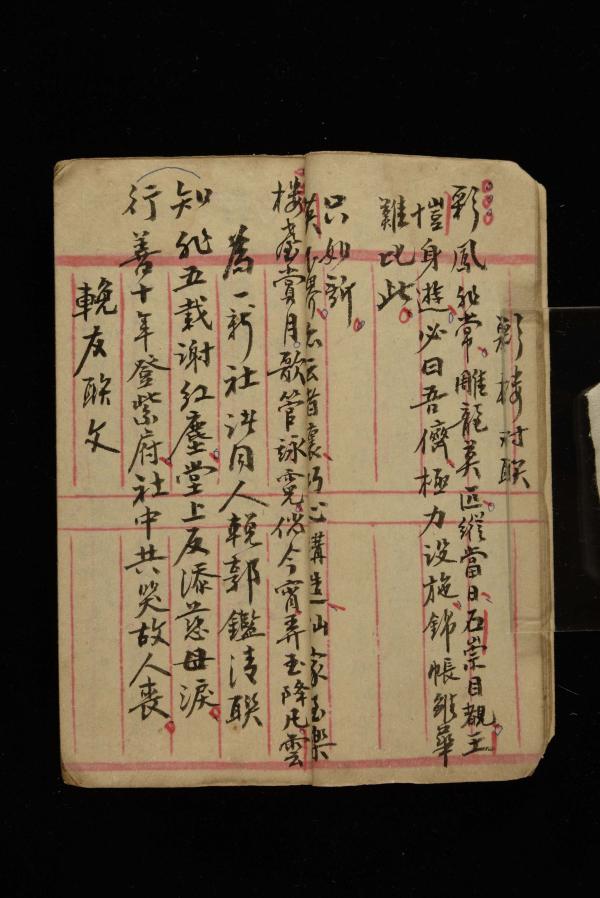 彩楼对联
彩鳳非常雕龍莫匹縱當日石崇目覩王
愷身遊必曰吾儕極力设施錦帳雖華
難比此
只如斯
楼臺賞月歌管詠霓倘今宵弄玉降凡雲
為一新社诸同人輓郭鑑清联
知非五載谢红塵堂上反添慈母淚
行善十年登紫府社中共哭故人喪
輓友联文